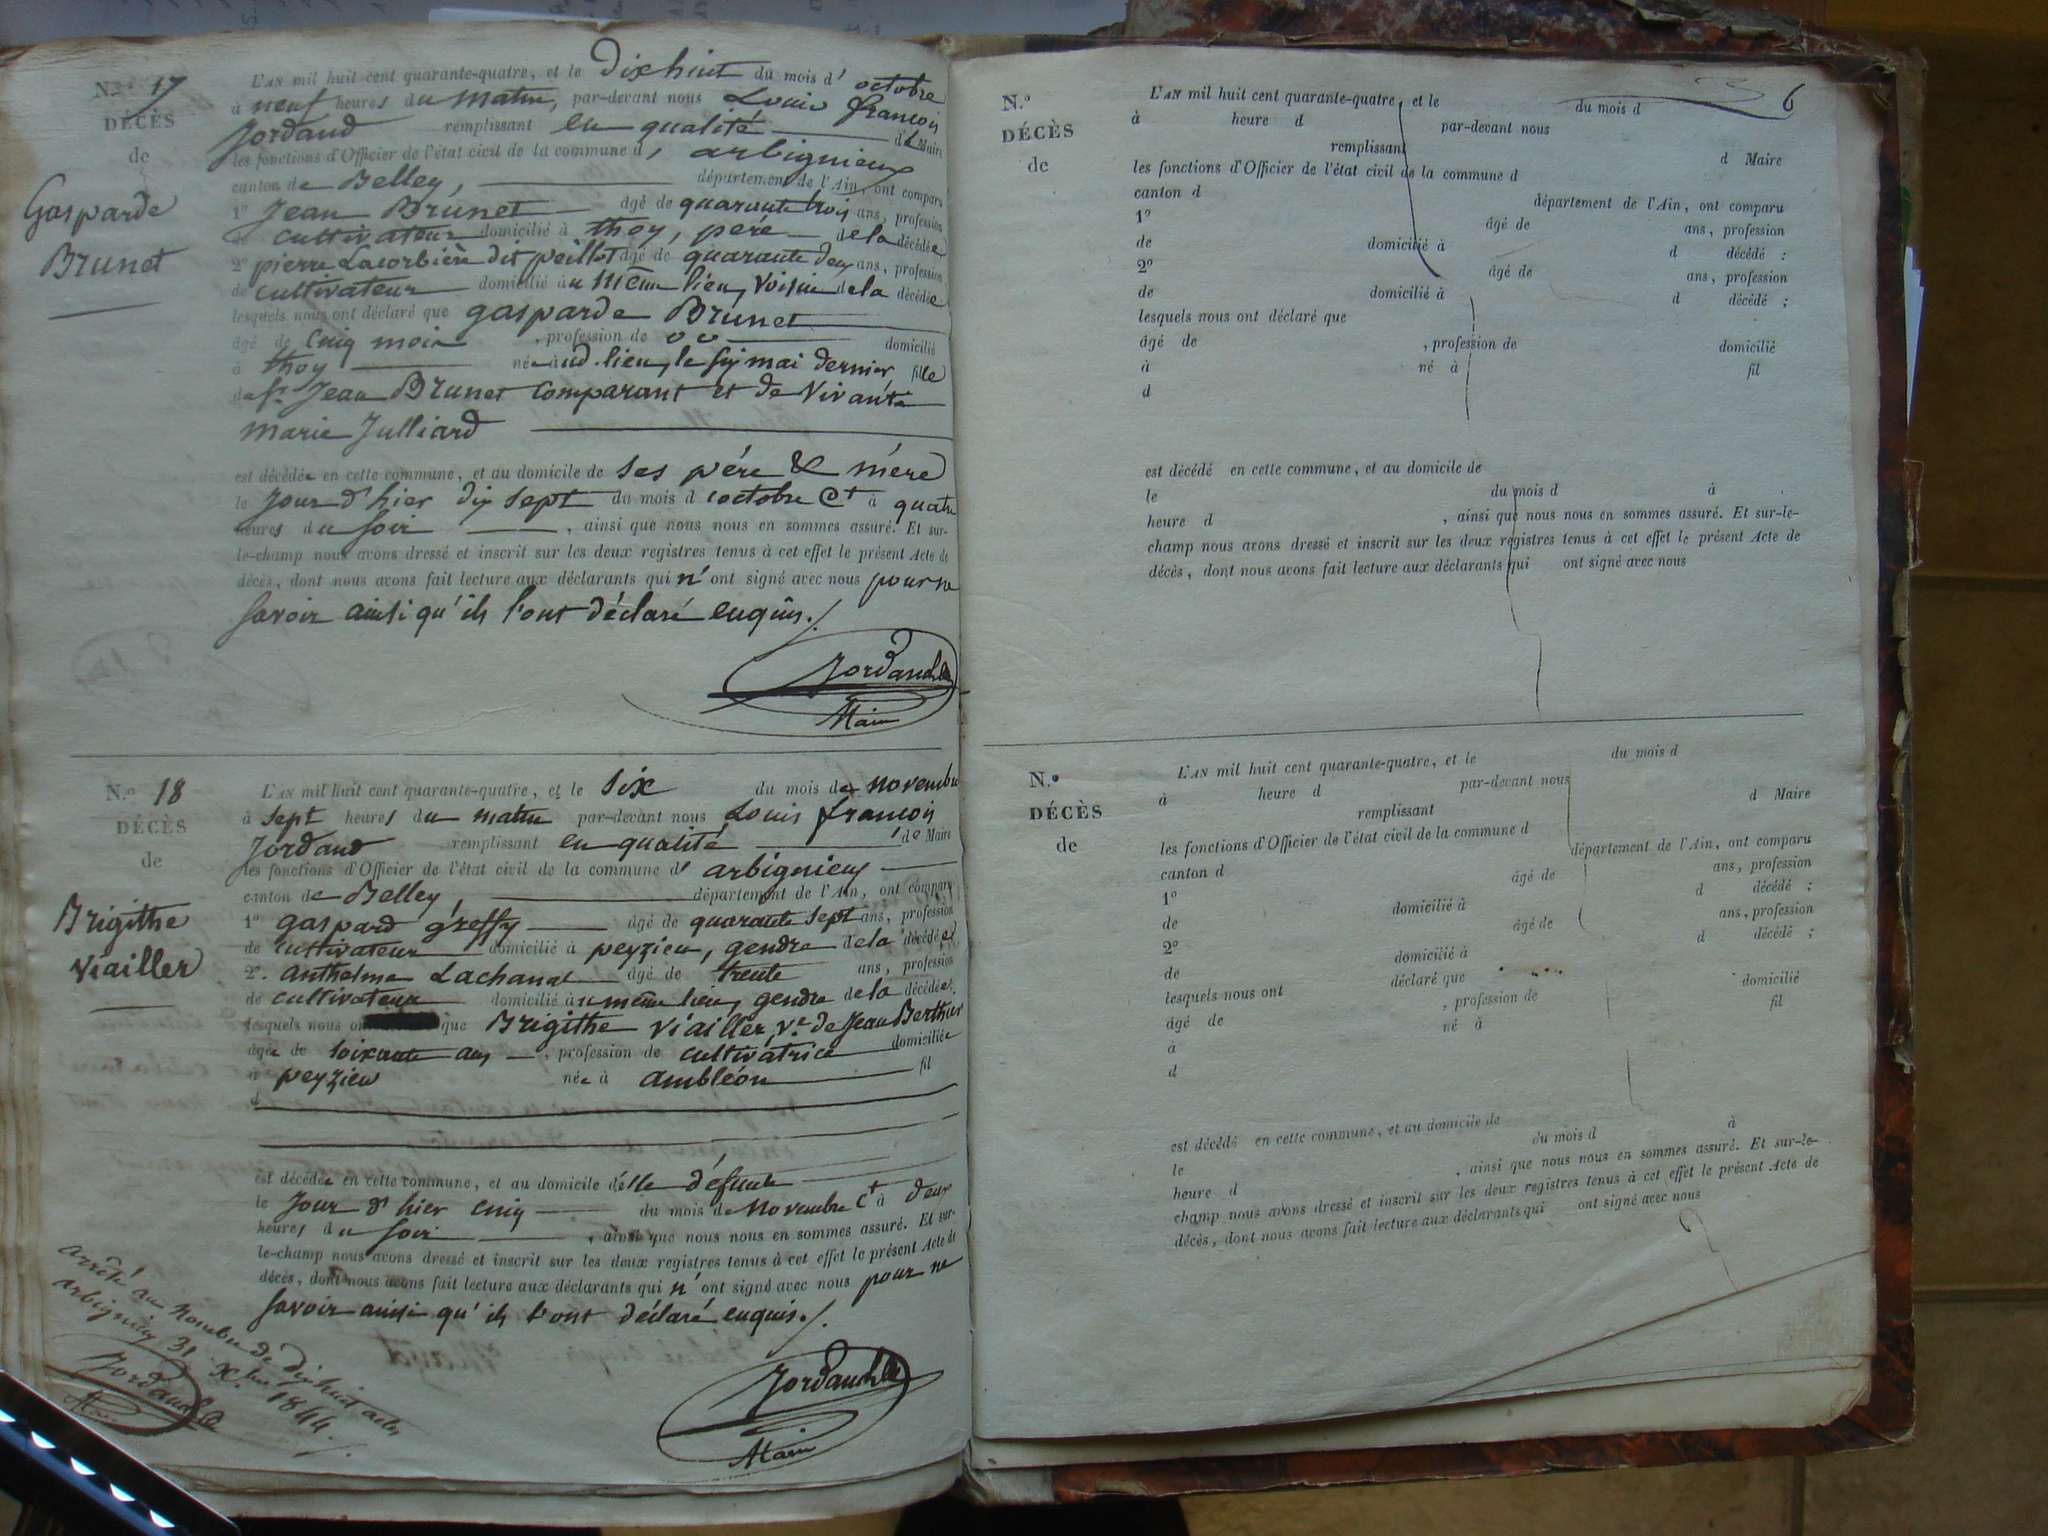 N.° 17
DÉCÈS
de
Gasparde
Brunet
L'AN mil huit cent quarante-quatre, et le dix huit du mois d'octobre
à neuf heures du matin, par-devant nous Louis françois
Jordand remplissant en qualité de Maire
les fonctions d'Officier de l'état civil de la commune d'arbignieux
canton de Belley, département de l'Ain, ont comparu
1° Jean Brunet âgé de quarante trois ans, profession
de cultivateur domicilié à thoy, père de la décédée
2° pierre Lacorbière dit peillot âgé de quarante deux ans, profession
de cultivateur domicilié au même lieu, voisin de la décédée
lesquels nous ont déclaré que gasparde Brunet
âgé de cinq mois, profession de domicilié
à thoy née aud. lieu, le six mai dernier fille
du sr. Jean Brunet comparant et de vivante
marie Julliard
est décédée en cette commune, et au domicile de ses père & mère
le jour d'hier dix sept du mois d'octobre Ct à quatre
heures du soir, ainsi que nous nous en sommes assuré. Et sur-
le-champ nous avons dressé et inscrit sur les deux registres tenus à cet effet le présent Acte de
décès, dont nous avons fait lecture aux déclarants qui n'ont signé avec nous pour ne
savoir ainsi qu'ils l'ont déclaré enquis./.
Maire
N.° 18
DÉCÈS
de
Brigithe
viailler
L'AN mil huit cent quarante-quatre, et le six du mois de novembre
à sept heures du matin par-devant nous Louis françois
Jordand remplissant en qualité de Maire
les fonctions d'Officier de l'état civil de la commune d'arbignieux
canton de Belley, département de l'Ain, ont comparu
1° gaspard greffy âgé de quarante sept ans, profession
de cultivateur domicilié à peyzieu, gendre de la décédée
2°. anthelme Lachanal âgé de trente ans, profession
de cultivateur domicilié au même lieu, gendre de la décédée,
lesquels nous ont que Brigithe viailler, ve. de Jean Berthier
âgée de soixante ans, profession de cultivatrice domiciliée
à peyzieu née à ambléon fil
d
est décédée en cette commune, et au domicile d'elle défunte
le jour d'hier cinq du mois de novembre Ct à deux
heures du soir, ainsi que nous nous en sommes assuré. Et sur-
le-champ nous avons dressé et inscrit sur les deux registres tenus à cet effet le présent Acte de
décès, dont nous avons fait lecture aux déclarants qui n'ont signé avec nous pour ne
savoir ainsi qu'ils l'ont déclaré enquis./.
Maire
arrêté au nombre de dix huit actes
arbignieux 31 Xbre 1844.
6
N.°
DÉCÈS
de
L'AN mil huit cent quarante-quatre, et le du mois d
à heure d par-devant nous
remplissant d Maire
les fonctions d'Officier de l'état civil de la commune d
canton d département de l'Ain, ont comparu
1° âgé de ans, profession
de domicilié à d décédé :
2° âgé de ans, profession
de domicilié à d décédé ;
lesquels nous ont déclaré que
âgé de , profession de domicilié
à né à fil
d
est décédé en cette commune, et au domicile de
le du mois d à
heure d , ainsi que nous nous en sommes assuré. Et sur-le-
champ nous avons dressé et inscrit sur les deux registres tenus à cet effet le présent Acte de
décès, dont nous avons fait lecture aux déclarants qui ont signé avec nous
N.°
DÉCÈS
de
L'AN mil huit cent quarante-quatre, et le du mois d
à heure d par-devant nous
remplissant d Maire
les fonctions d'Officier de l'état civil de la commune d
canton d département de l'Ain, ont comparu
1° âgé de ans, profession
de domicilié à d décédé ;
2° âgé de ans, profession
de domicilié à d décédé ;
lesquels nous ont déclaré que
âgé de , profession de domicilié
à né à fil
d
est décédé en cette commune, et au domicile de
le du mois d à
heure d , ainsi que nous nous en sommes assuré. Et sur-le-
champ nous avons dressé et inscrit sur les deux registres tenus à cet effet le présent Acte de
décès, dont nous avons fait lecture aux déclarants qui ont signé avec nous